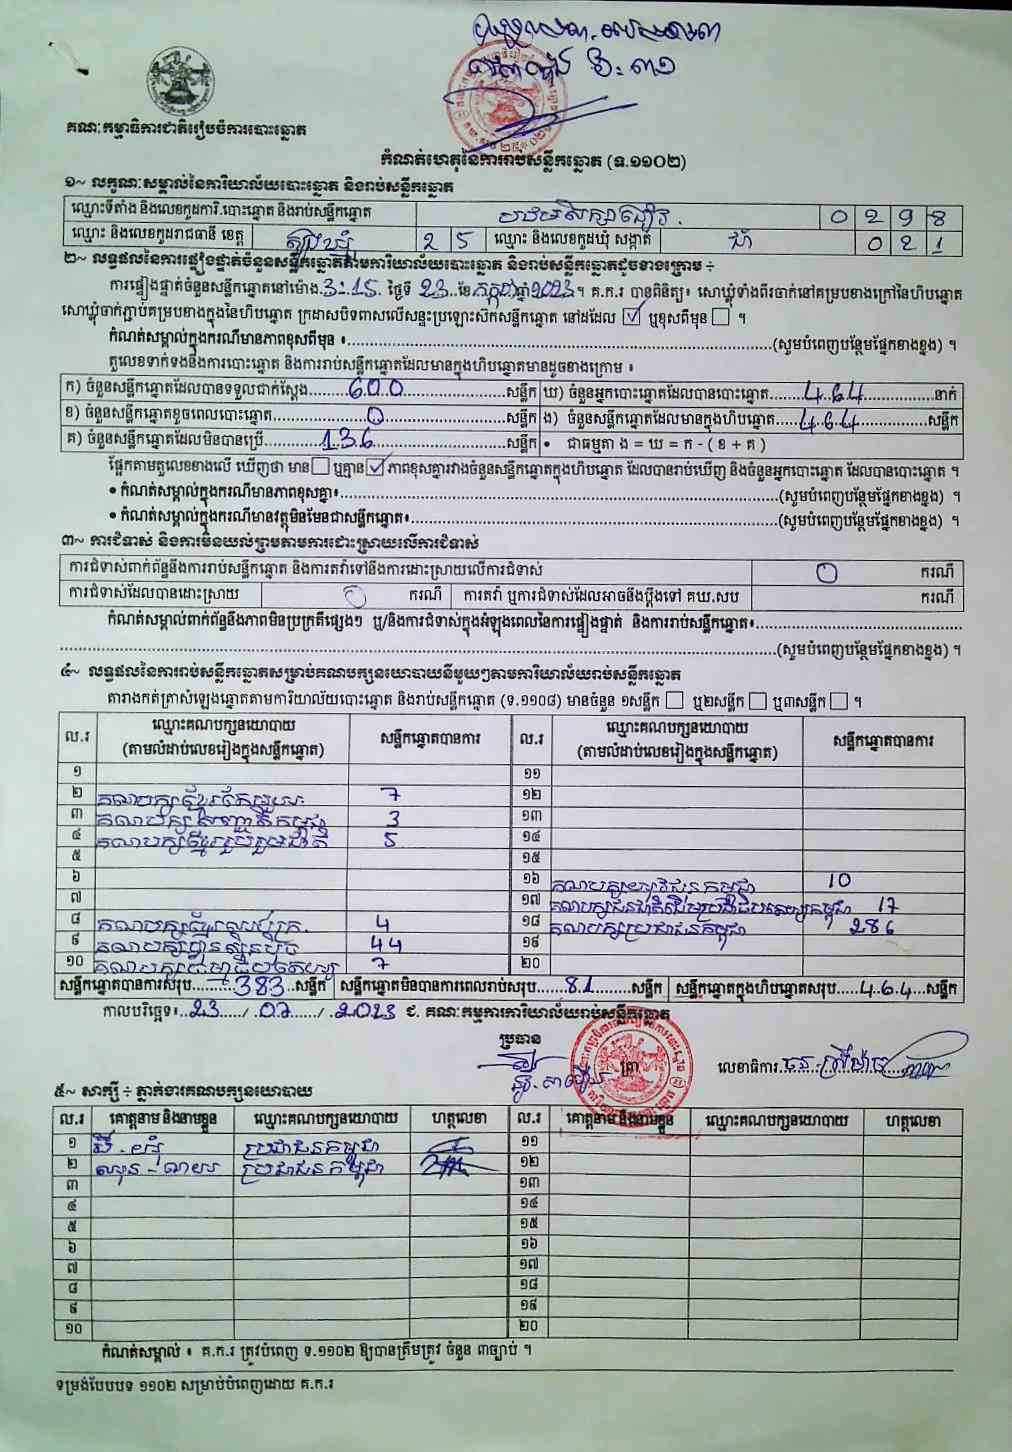 គណៈកម្មាធិការជាតិរៀបចំការបោះឆ្នោត
កំណត់ហេតុនៃការរាប់សន្លឹកឆ្នោត (ទ.១១០២)
១~ លក្ខណៈសម្គាល់នៃការិយាល័យបោះឆ្នោត និងរាប់សន្លឹកឆ្នោត
ឈ្មោះទីតាំង និងលេខកូដការិ.បោះឆ្នោត និងរាប់សន្លឹកឆ្នោត 0 2 9 8
ឈ្មោះ និងលេខកូដរាជធានី ខេត្ត ត្បូងឃ្មុំ 2 5 ឈ្មោះ និងលេខកូដឃុំ សង្កាត់ ជាំ 0 2 1
២~ លទ្ធផលនៃការផ្ទៀងផ្ទាត់ចំនួនសន្លឹកឆ្នោតតាមការិយាល័យបោះឆ្នោត និងរាប់សន្លឹកឆ្នោតដូចខាងក្រោម ÷
ការផ្ទៀងផ្ទាត់ចំនួនសន្លឹកឆ្នោតនៅម៉ោង.3:15. ថ្ងៃទី 23..ខែ.កក្កដាឆ្នាំ2023។ គ.ក.រ បានពិនិត្យ៖ សោឃ្លុំទាំងពីរចាក់នៅគម្របខាងក្រៅនៃហិបឆ្នោត
សោឃ្លុំចាក់ភ្ជាប់គម្របខាងក្នុងនៃហិបឆ្នោត ក្រដាសបិទពាសលើសន្ទះប្រឡោះស៊កសន្លឹកឆ្នោត នៅដដែល ☑ ឬខុសពីមុន ☐ ។
កំណត់សម្គាល់ក្នុងករណីមានភាពខុសពីមុន ៖..........(សូមបំពេញបន្ថែមផ្នែកខាងខ្នង) ។
តួលេខទាក់ទងនឹងការបោះឆ្នោត និងការរាប់សន្លឹកឆ្នោតដែលមានក្នុងហិបឆ្នោតមានដូចខាងក្រោម ៖
ក) ចំនួនសន្លឹកឆ្នោតដែលបានទទួលជាក់ស្តែង.....600.....សន្លឹក ឃ) ចំនួនអ្នកបោះឆ្នោតដែលបានបោះឆ្នោត.....464.....នាក់
ខ) ចំនួនសន្លឹកឆ្នោតខូចពេលបោះឆ្នោត.....0.....សន្លឹក ង) ចំនួនសន្លឹកឆ្នោតដែលមានក្នុងហិបឆ្នោត.....464.....សន្លឹក
គ) ចំនួនសន្លឹកឆ្នោតដែលមិនបានប្រើ.....136.....សន្លឹក • ជាធម្មតា ង = ឃ = ក - ( ខ + គ )
ផ្អែកតាមតួលេខខាងលើ ឃើញថា មាន☐ ឬគ្មាន☑ ភាពខុសគ្នារវាងចំនួនសន្លឹកឆ្នោតក្នុងហិបឆ្នោត ដែលបានរាប់ឃើញ និងចំនួនអ្នកបោះឆ្នោត ដែលបានបោះឆ្នោត ។
• កំណត់សម្គាល់ក្នុងករណីមានភាពខុសគ្នា៖..........(សូមបំពេញបន្ថែមផ្នែកខាងខ្នង) ។
• កំណត់សម្គាល់ក្នុងករណីមានវត្ថុមិនមែនជាសន្លឹកឆ្នោត៖..........(សូមបំពេញបន្ថែមផ្នែកខាងខ្នង) ។
៣~ ការជំទាស់ និងការមិនយល់ព្រមតាមការដោះស្រាយលើការជំទាស់
ការជំទាស់ពាក់ព័ន្ធនឹងការរាប់សន្លឹកឆ្នោត និងការតវ៉ាទៅនឹងការដោះស្រាយលើការជំទាស់ 0 ករណី
ការជំទាស់ដែលបានដោះស្រាយ 0 ករណី ការតវ៉ា ឬការជំទាស់ដែលអាចនឹងប្តឹងទៅ គឃ.សប ករណី
កំណត់សម្គាល់ពាក់ព័ន្ធនឹងភាពមិនប្រក្រតីផ្សេងៗ ឬ/និងការជំទាស់ក្នុងអំឡុងពេលនៃការផ្ទៀងផ្ទាត់ និងការរាប់សន្លឹកឆ្នោត៖..........
..........(សូមបំពេញបន្ថែមផ្នែកខាងខ្នង) ។
៤~ លទ្ធផលនៃការរាប់សន្លឹកឆ្នោតសម្រាប់គណបក្សនយោបាយនីមួយៗតាមការិយាល័យរាប់សន្លឹកឆ្នោត
តារាងកត់ត្រាសំឡេងឆ្នោតតាមការិយាល័យបោះឆ្នោត និងរាប់សន្លឹកឆ្នោត (ទ.១១០៨) មានចំនួន ១សន្លឹក ☐ ឬ២សន្លឹក ☐ ឬ៣សន្លឹក ☐ ។
ល.រ ឈ្មោះគណបក្សនយោបាយ (តាមលំដាប់លេខរៀងក្នុងសន្លឹកឆ្នោត) សន្លឹកឆ្នោតបានការ ល.រ ឈ្មោះគណបក្សនយោបាយ (តាមលំដាប់លេខរៀងក្នុងសន្លឹកឆ្នោត) សន្លឹកឆ្នោតបានការ
១ ១១
២ គណបក្សខ្មែរ 7 ១២
៣ គណបក្ស កម្ពុជា 3 ១៣
៤ គណបក្សខ្មែររួបរួមជាតិ 5 ១៤
៥ ១៥
៦ ១៦ គណបក្ស កម្ពុជា 10
៧ ១៧ គណបក្សជនជាតិដើមប្រជាធិបតេយ្យកម្ពុជា 17
៨ គណបក្សខ្មែរ 4 ១៨ គណបក្សប្រជាជនកម្ពុជា 286
៩ គណបក្សហ្វ៊ុនស៊ិនប៉ិច 44 ១៩
១០ គណបក្ស 7 ២០
សន្លឹកឆ្នោតបានការសរុប.....383..សន្លឹក សន្លឹកឆ្នោតមិនបានការពេលរាប់សរុប......81.......សន្លឹក សន្លឹកឆ្នោតក្នុងហិបឆ្នោតសរុប.....464...សន្លឹក
កាលបរិច្ឆេទ៖..23...../..07....../..2023 ជ. គណៈកម្មការការិយាល័យរាប់សន្លឹកឆ្នោត
ប្រធាន
ត្រា លេខាធិការ
៥~ សាក្សី ÷ ភ្នាក់ងារគណបក្សនយោបាយ
ល.រ គោត្តនាម និងនាមខ្លួន ឈ្មោះគណបក្សនយោបាយ ហត្ថលេខា ល.រ គោត្តនាម និងនាមខ្លួន ឈ្មោះគណបក្សនយោបាយ ហត្ថលេខា
១ ប្រជាជនកម្ពុជា ១១
២ ប្រជាជនកម្ពុជា ១២
៣ ១៣
៤ ១៤
៥ ១៥
៦ ១៦
៧ ១៧
៨ ១៨
៩ ១៩
១០ ២០
កំណត់សម្គាល់ ៖ គ.ក.រ ត្រូវបំពេញ ទ.១១០២ ឱ្យបានត្រឹមត្រូវ ចំនួន ៣ច្បាប់ ។
ទម្រង់បែបបទ ១១០២ សម្រាប់បំពេញដោយ គ.ក.រ